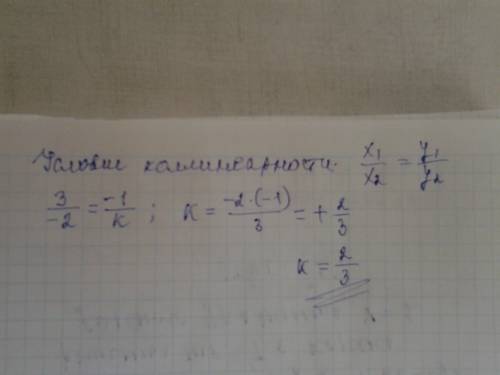 Условие коллинеарности: x₁/x₂ = y₁/y₂
3/-2 = -1/k ; k = -2·(-1)/3 = + 2/3
k = 2/3